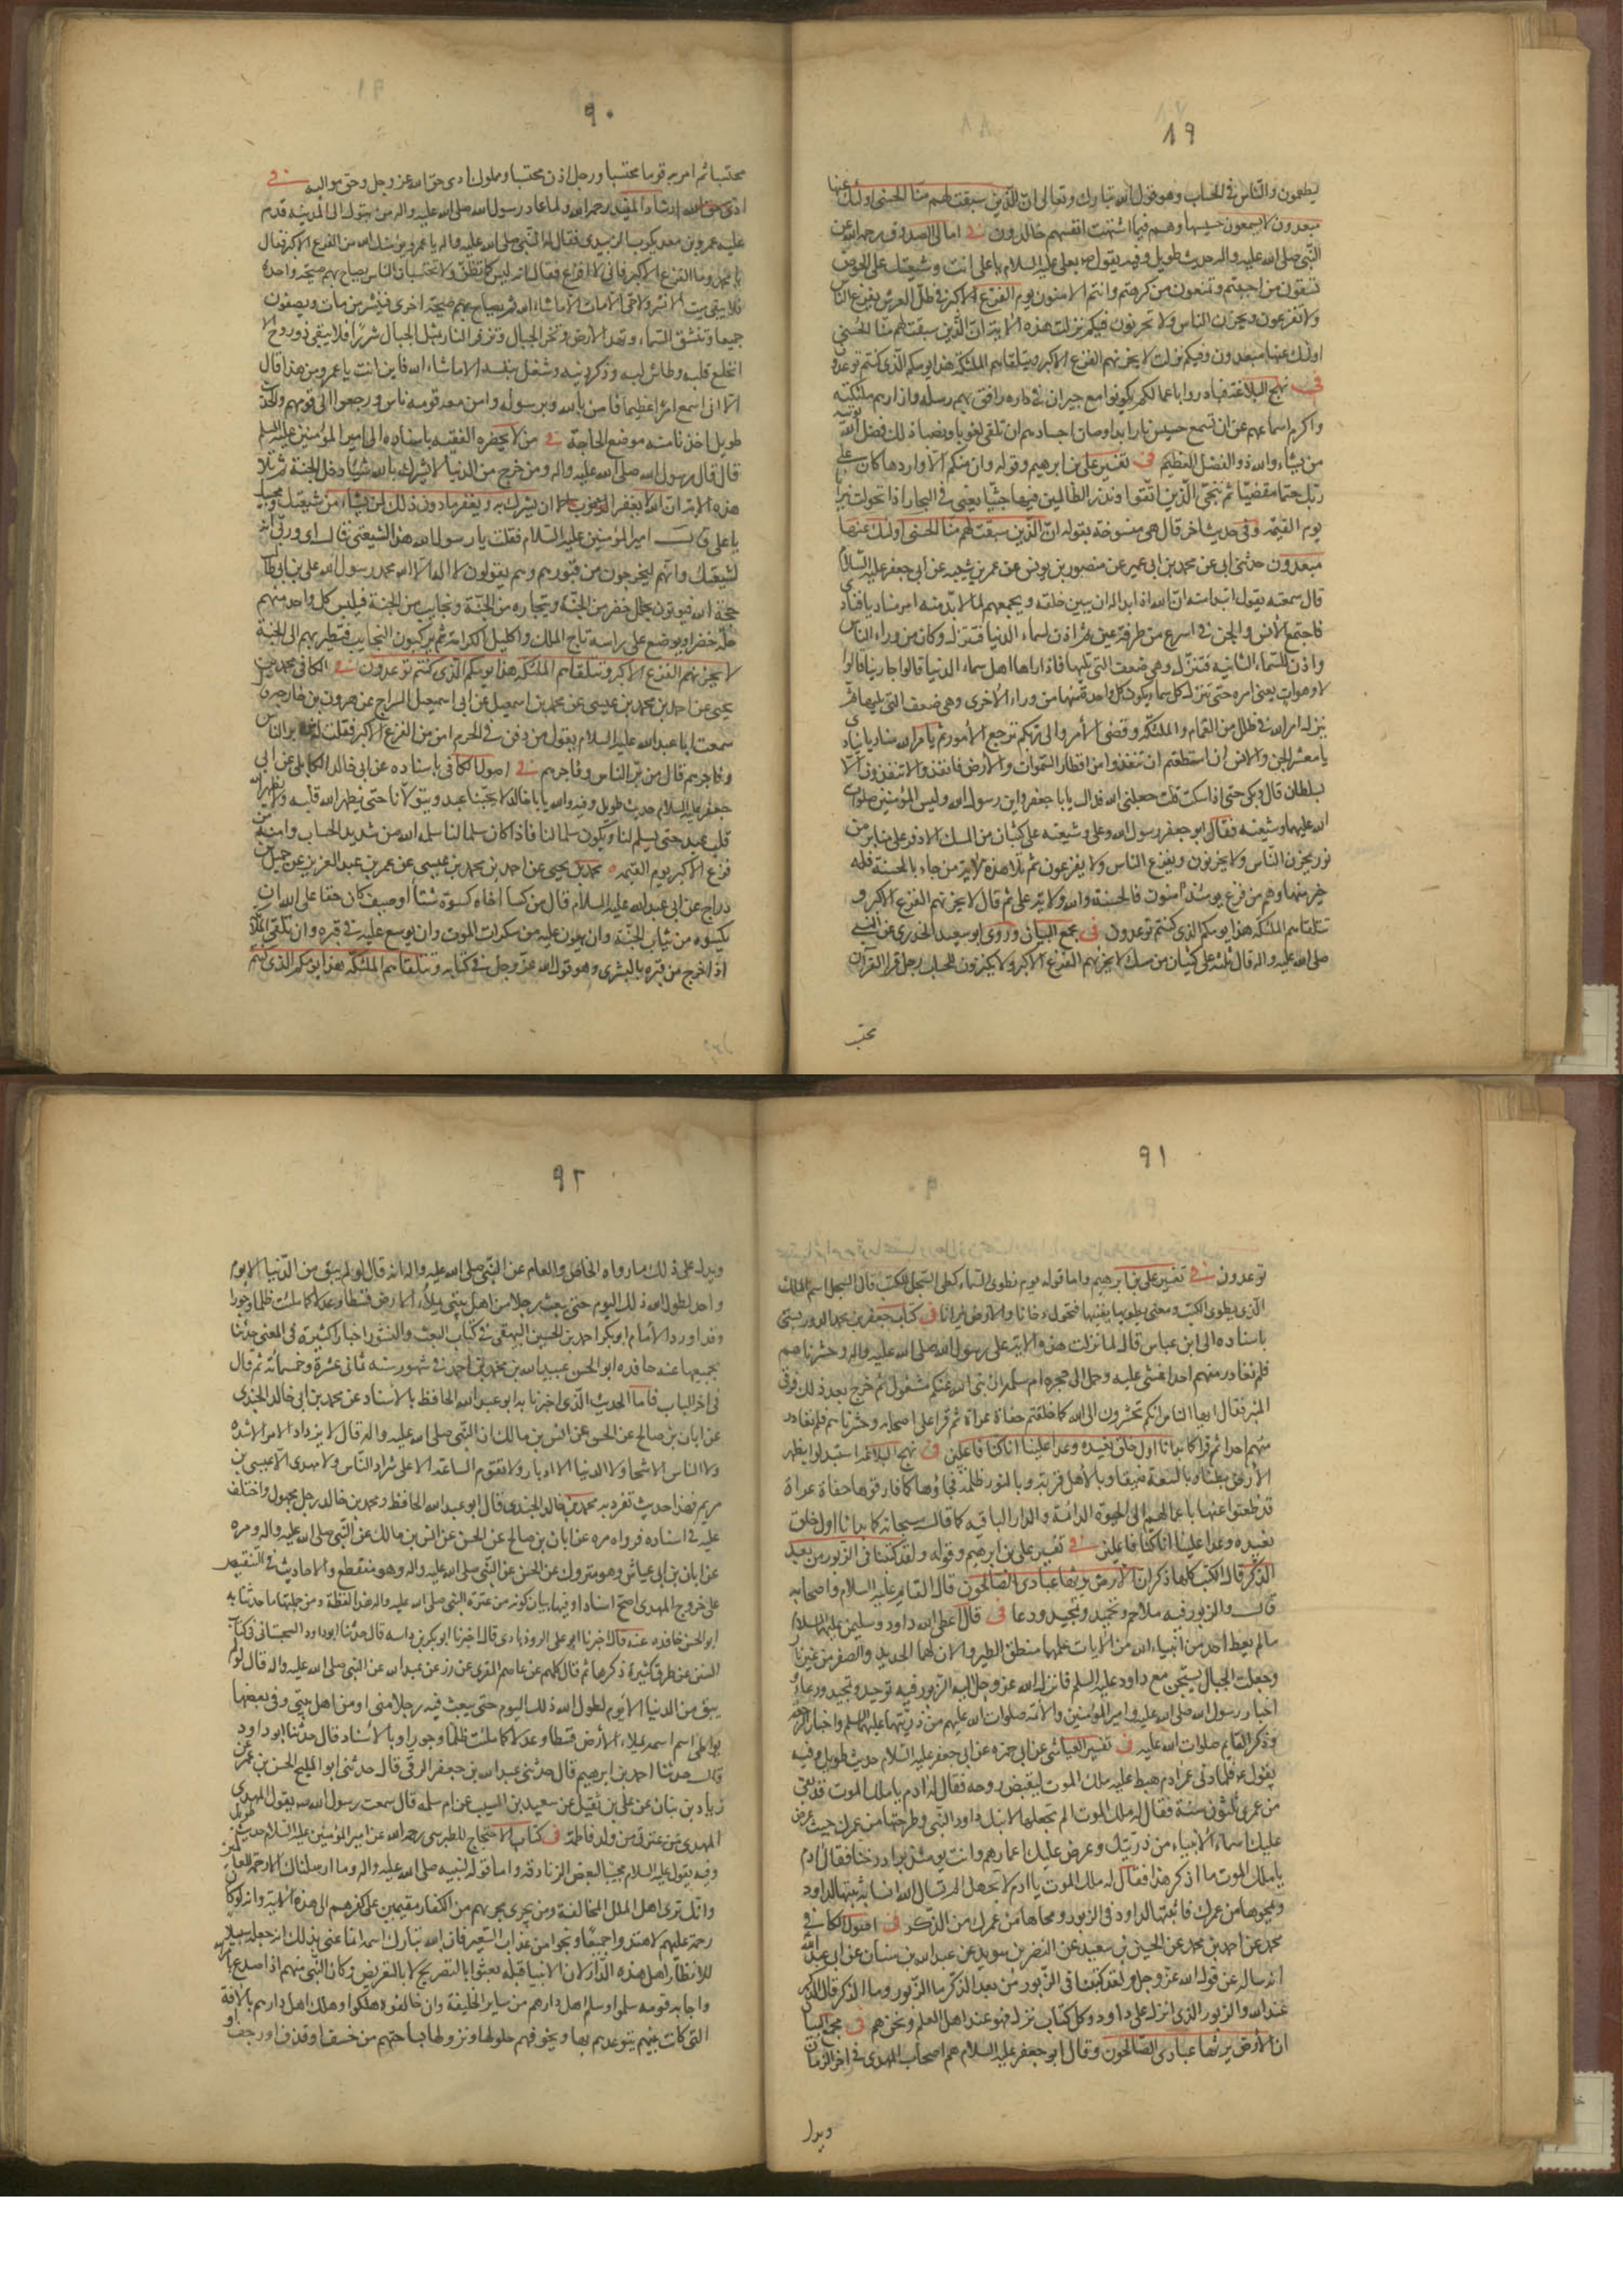 ٨٩
يطعمون والناس في الحساب وهو قول الله تبارك وتعالى ان الذين سبقت لهم منا الحسنى اولئك عنها
مبعدون لا يسمعون حسيسها وهم فيما اشتهت انفسهم خالدون في امالى الصدوق رحمه الله عن
النبي صلى الله عليه واله حديث طويل وفيه يقول لعلى عليه السلام يا على انت وشيعتك على الحوض
تسقون من احببتم وتمنعون من كرهتم وانتم الآمنون يوم الفزع الاكبر في ظل العرش يفزع الناس
ولا تفزعون ويحزن الناس ولا تحزنون فيكم نزلت هذه الاية ان الذين سبقت لهم منا الحسنى
اولئك عنها مبعدون وفيكم نزلت لا يحزنهم الفزع الاكبر وتتلقاهم الملئكة هذا يومكم الذى كنتم توعدون
في نهج البلاغة فبادروا باعمالكم تكونوا مع جيران الله في داره رافق بهم رسله وازارهم ملئكته
واكرم اسماعهم عن ان تسمع حسيس نار ابدا وصان اجسادهم ان تلقى لغوبا ونصبا ذلك فضل الله يؤتيه
من يشاء والله ذو الفضل العظيم في تفسير على بن ابرهيم وقوله وان منكم الا واردها كان على
ربك حتما مقضيا ثم ننجى الذين اتقوا ونذر الظالمين فيها جثيا يعنى في البحار اذا تحولت نيرانا
يوم القيمة وفي حديث اخر قال هى منسوخة بقوله ان الذين سبقت لهم منا الحسنى اولئك عنها
مبعدون حدثنى ابى عن محمد بن ابى عمير عن منصور بن يونس عن عمر بن شيبه عن ابى جعفر عليه السلام
قال سمعته يقول ابتداء منه ان الله اذا بدا له ان يبين خلقه ويجمعهم لما لا بد منه امر مناديا فنادى
فاجتمع الانس والجن في اسرع من طرفة عين ثم اذن لسماء الدنيا فتنزل وكان من وراء الناس
واذن للسماء الثانية فتنزل وهى ضعف التى تليها فاذا راها اهل سماء الدنيا قالوا جاء ربنا قالوا
لا وهو آت يعنى امره حتى تنزل كل سماء يكون كل واحدة منها من وراء الاخرى وهى ضعف التى تليها ثم
ينزل امر الله في ظلل من الغمام والملئكة وقضى الأمر والى ربكم ترجع الأمور ثم يامر الله مناديا ينادى
يا معشر الجن والانس ان استطعتم ان تنفذوا من اقطار السموات والأرض فانفذوا لا تنفذون الا
بسلطان قال وبكى حتى اذا سكت قلت جعلنى الله فداك يا با جعفر واين رسول الله وامير المؤمنين صلوات
الله عليهما وشيعته فقال ابو جعفر رسول الله وعلى وشيعته على كثبان من المسك الاذفر على منابر من
نور يحزن الناس ولا يحزنون ويفزع الناس ولا يفزعون ثم تلا هذه الاية من جاء بالحسنة فله
خير منها وهم من فزع يومئذ آمنون فالحسنة والله ولاية على ثم قال لا يحزنهم الفزع الاكبر و
تتلقاهم الملئكة هذا يومكم الذى كنتم توعدون في مجمع البيان وروى ابو سعيد الخدرى عن النبى
صلى الله عليه واله قال ثلثة على كثبان من مسك لا يحزنهم الفزع الاكبر ولا يكترثون للحساب رجل قرا القرآن
محتسبا
٩٠
محتسبا ثم ام به قوما محتسبا ورجل اذن محتسبا ومملوك ادى حق الله عز وجل وحق مواليه في
ارشاد المفيد رحمه الله ولما عاد رسول الله صلى الله عليه واله من تبوك الى المدينة قدم
عليه عمرو بن معد يكرب الزبيدى فقال له النبى صلى الله عليه واله يا عمرو يؤمنك الله من الفزع الاكبر فقال
يا محمد وما الفزع الاكبر فانى لا افزع فقال انه ليس كما تظن ولا تحتسب ان الناس يصاح بهم صيحة واحدة
فلا يبقى ميت الا نشر ولا حى الا مات الا ما شاء الله ثم يصاح بهم صيحة اخرى فينشر من مات ويصفون
جميعا وتنشق السماء وتهد الأرض وتخر الجبال وتزفر النار بمثل الجبال شررا فلا يبقى ذو روح الا
انخلع قلبه وطاش لبه وذكر ذنبه وشغل بنفسه الا ما شاء الله فاين انت يا عمرو من هذا قال
الا انى اسمع امرا عظيما فآمن بالله وبرسوله وامن معه قومه ناس ورجعوا الى قومهم والحديث
طويل اخذنا منه موضع الحاجة في من لا يحضره الفقيه باسناده الى امير المؤمنين عليه السلم
قال قال رسول الله صلى الله عليه واله ومن خرج من الدنيا لا يشرك بالله شيئا دخل الجنة ثم تلا
هذه الاية ان الله لا يغفر ان يشرك به ويغفر ما دون ذلك لمن يشاء من شيعتك ومحبيك
يا على قال امير المؤمنين عليه السلام فقلت يا رسول الله هذا لشيعتى قال اى وربى انه
لشيعتك وانهم ليخرجون من قبورهم وهم يقولون لا اله الا الله محمد رسول الله على بن ابى طالب
حجة الله فيؤتون بحلل خضر من الجنة وتيجان من الجنة ونجايب من الجنة فيلبس كل واحد منهم
حلة خضرا ويوضع على راسه تاج الملك واكليل الكرامة ثم يركبون النجايب فتطير بهم الى الجنة
لا يحزنهم الفزع الاكبر وتتلقاهم الملئكة هذا يومكم الذى كنتم توعدون في الكافى محمد بن
يحيى عن احمد بن محمد بن عيسى عن محمد بن اسمعيل عن ابى اسمعيل السراج عن هرون بن خارجه قال
سمعت ابا عبد الله عليه السلام يقول من دفن في الحرم امن من الفزع الاكبر فقلت له من بر الناس
وفاجرهم قال من بر الناس وفاجرهم في اصول الكافى باسناده عن ابى خالد الكابلى عن ابى
جعفر عليه السلام حديث طويل وفيه والله يا با خالد لا يحبنا عبد ويتولانا حتى يطهر الله قلبه ولا يطهر الله
قلب عبد حتى يسلم لنا ويكون سلما لنا فاذا كان سلما لنا سلمه الله من شديد الحساب وامنه من
فزع الاكبر يوم القيمه محمد بن يحيى عن احمد بن محمد بن عيسى عن عمر بن عبد العزيز عن جميل بن
دراج عن ابى عبد الله عليه السلام قال من كسا اخاه كسوة شتاء او صيف كان حقا على الله ان
يكسوه من ثياب الجنة وان يهون عليه من سكرات الموت وان يوسع عليه في قبره وان تلقى الملائكة
اذا خرج من قبره بالبشرى وهو قول الله عز وجل في كتابه وتتلقاهم الملئكة هذا يومكم الذى كنتم
٩١
توعدون في تفسير على بن ابرهيم واما قوله يوم نطوى السماء كطى السجل للكتب قال السجل اسم الملك
الذى يطوى الكتب ومعنى يطويها يفنيها فتحول دخانا والارض نيرانا في كتاب جعفر بن محمد الدوريستى
باسناده الى ابن عباس قال لما نزلت هذه الاية على رسول الله صلى الله عليه واله وحشرناهم
فلم نغادر منهم احدا غشى عليه وحمل الى حجرة ام سلمة ان نبى الله عنكم مشغول ثم خرج بعد ذلك فرقى
المنبر فقال ايها الناس انكم تحشرون الى الله كما خلقتم حفاة عراة ثم قرا على اصحابه وحشرناهم فلم نغادر
منهم احدا ثم قرا كما بدانا اول خلق نعيده وعدا علينا انا كنا فاعلين في نهج البلاغة استبدلوا بظهر
الأرض بطنا وبالسعة ضيقا وبالأهل غربة وبالنور ظلمة فجاؤها كما فارقوها حفاة عراة
قد ظعنوا عنها باعمالهم الى الحيوة الدائمة والدار الباقيه كما قال سبحانه كما بدانا اول خلق
نعيده وعدا علينا انا كنا فاعلين في تفسير على بن ابرهيم وقوله ولقد كتبنا في الزبور من بعد
الذكر قال الكتب كلها ذكر ان الأرض يرثها عبادى الصالحون قال القايم عليه السلام واصحابه
قال والزبور فيه ملاحم وتحميد وتمجيد ودعا في قال اعطى الله داود وسليمن عليهما السلام
ما لم يعط احد من انبياء الله من الآيات علمهما منطق الطير والان لهما الحديد والصفر من غير نار
وجعلت الجبال يسبحن مع داود عليه السلم فانزل الله عز وجل اليه الزبور فيه توحيد وتمجيد ودعاء
اخبار رسول الله صلى الله عليه وامير المؤمنين والأئمة صلوات الله عليهم من ذريتهما عليهما السلم واخبار الرجعة
وذكر القايم صلوات الله عليه في تفسير العياشى عن ابى حمزه عن ابى جعفر عليه السلام حديث طويل وفيه
يقول فلما دنى عمر ادم هبط عليه ملك الموت ليقبض روحه فقال له ادم يا ملك الموت قد بقى
من عمرى ثلثون سنة فقال له ملك الموت الم تجعلها لابنك داود النبى وطرحتها من عمرك حيث عرض
عليك اسماء الأنبياء من ذريتك وعرض عليك اعمارهم وانت يومئذ بوادى دخنا فقال ادم
يا ملك الموت ما اذكر هذا فقال له ملك الموت يا ادم لا تجهل الم تسال الله ان يثبتها لداود
ويمحوها من عمرك فاثبتها لداود في الزبور ومحاها من عمرك من الذكر في اصول الكافى
محمد عن احمد بن محمد عن الحسين بن سعيد عن النضر بن سويد عن عبد الله بن سنان عن ابى عبد الله
انه ساله عن قول الله عز وجل ولقد كتبنا في الزبور من بعد الذكر ما الزبور وما الذكر قال الذكر
عند الله والزبور الذى انزل على داود وكل كتاب نزل فهو عند اهل العلم ونحن هم في مجمع البيان
ان الأرض يرثها عبادى الصالحون وقال ابو جعفر عليه السلام هم اصحاب المهدى في اخر الزمان
ويدل
٩٢
ويدل على ذلك ما رواه الخاص والعام عن النبى صلى الله عليه واله انه قال لو لم يبق من الدنيا الا يوم
واحد لطول الله ذلك اليوم حتى يبعث رجلا من اهل بيتى يملاء الأرض قسطا وعدلا كما ملئت ظلما وجورا
وقد اورد الأمام ابو بكر احمد بن الحسين البيهقى في كتاب البعث والنشور اخبارا كثيرة في المعنى حدثنا
بجميعها عنه حافده ابو الحسن عبيد الله بن محمد بن احمد في شهور سنه ثمانى عشرة وخمسمائة ثم قال
في اخر الباب فاما الحديث الذى اخبرنا به ابو عبد الله الحافظ بالاسناد عن محمد بن خالد الجندى
عن ابان بن صالح عن الحسن عن انس بن مالك ان النبى صلى الله عليه واله قال لا يزداد الامر الا شدة
ولا الناس الا شحا ولا الدنيا الا ادبارا ولا تقوم الساعة الا على شرار الناس ولا مهدى الا عيسى بن
مريم فهذا حديث تفرد به محمد بن خالد الجندى قال ابو عبد الله الحافظ ومحمد بن خالد رجل مجهول واختلف
عليه في اسناده فرواه مره عن ابان بن صالح عن الحسن عن انس بن مالك عن النبى صلى الله عليه واله ومره
عن ابان بن ابى عياش وهو متروك عن الحسن عن النبى صلى الله عليه واله وهو منقطع والاحاديث في التنصيص
على خروج المهدى اصح اسنادا وفيها بيان كونه من عترة النبى صلى الله عليه واله هذا لفظه ومن جملتها ما حدثنا به
ابو الحسن حافده عنه قال اخبرنا ابو على الروذبادى قال اخبرنا ابو بكر بن داسه قال حدثنا ابو داود السجستانى في كتاب
السنن عن طرق كثيرة ذكرها ثم قال كلهم عن عاصم المقرى عن زر عن عبد الله عن النبى صلى الله عليه واله قال لو لم
يبق من الدنيا الا يوم لطول الله ذلك اليوم حتى يبعث فيه رجلا منى او من اهل بيتى وفي بعضها
يواطى اسمه اسمى يملاء الأرض قسطا وعدلا كما ملئت ظلما وجورا وبالأسناد قال حدثنا ابو داود
قال حدثنا احمد بن ابرهيم قال حدثنى عبد الله بن جعفر الرقى قال حدثنى ابو المليح الحسن بن عمر عن
زياد بن بنان عن على بن نفيل عن سعيد بن المسيب عن ام سلمه قال سمعت رسول الله يقول المهدى
المهدى من عترتى من ولد فاطمة في كتاب الاحتجاج للطبرسى رحمه الله عن امير المؤمنين عليه السلام حديث طويل
وفيه يقول عليه السلام مجيبا لبعض الزنادقه واما قوله لنبيه صلى الله عليه واله وما ارسلناك الا رحمة للعالمين
وانك ترى اهل الملل المخالفة ومن يجرى مجريهم من الكفار مقيمين على كفرهم الى هذه الغاية وانه لو كان
رحمة عليهم لاهتدوا جميعا ونجوا من عذاب السعير فان الله تبارك اسمه انما عنى بذلك انه جعله سبيلا
للأنظار اهل هذه الدار لان الانبيا قبله بعثوا بالتصريح لا بالتعريض وكان النبى منهم اذا صدع بامر الله
واجابه قومه سلموا وسلم اهل دارهم من ساير الخليقة وان خالفوه هلكوا وهلك اهل دارهم بالآفة
التى كانت نبيهم يتوعدهم بها ويخوفهم حلولها ونزولها بساحتهم من خسف او قذف او رجف او